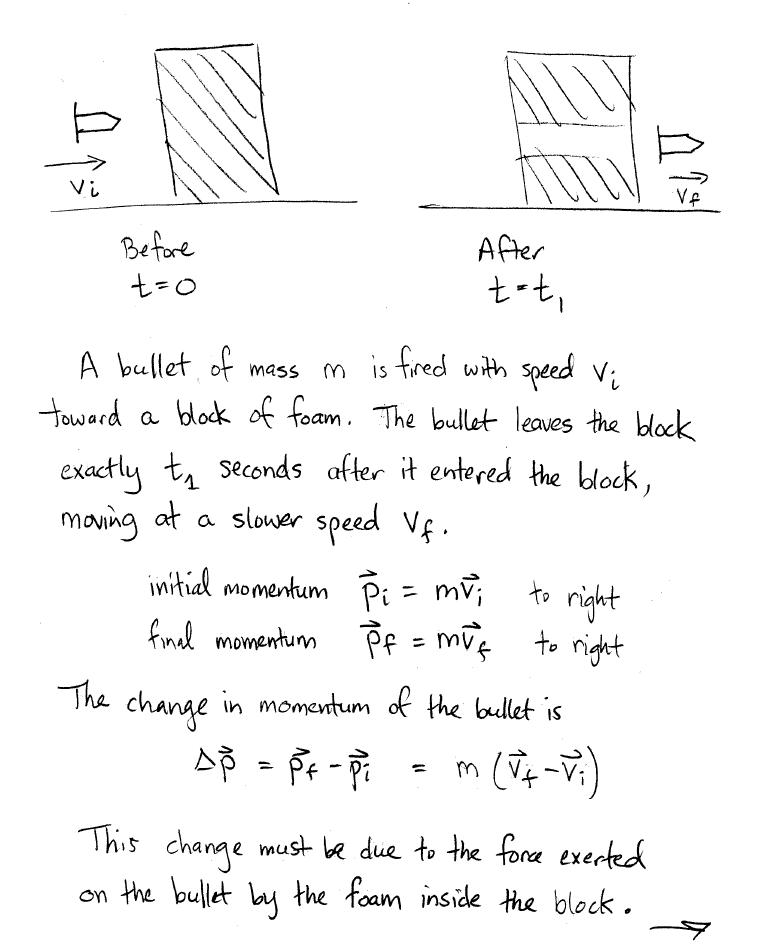 v⃗i
vf
Before
After
t=0
t=t₁
A bullet of mass m is fired with speed vᵢ
toward a block of foam. The bullet leaves the block
exactly t₁ seconds after it entered the block,
moving at a slower speed vf.
initial momentum p⃗i = mv⃗i to right
final momentum p⃗f = mv⃗f to right
The change in momentum of the bullet is
Δp⃗ = p⃗f - p⃗i = m (v⃗f - v⃗i)
This change must be due to the force exerted
on the bullet by the foam inside the block. →